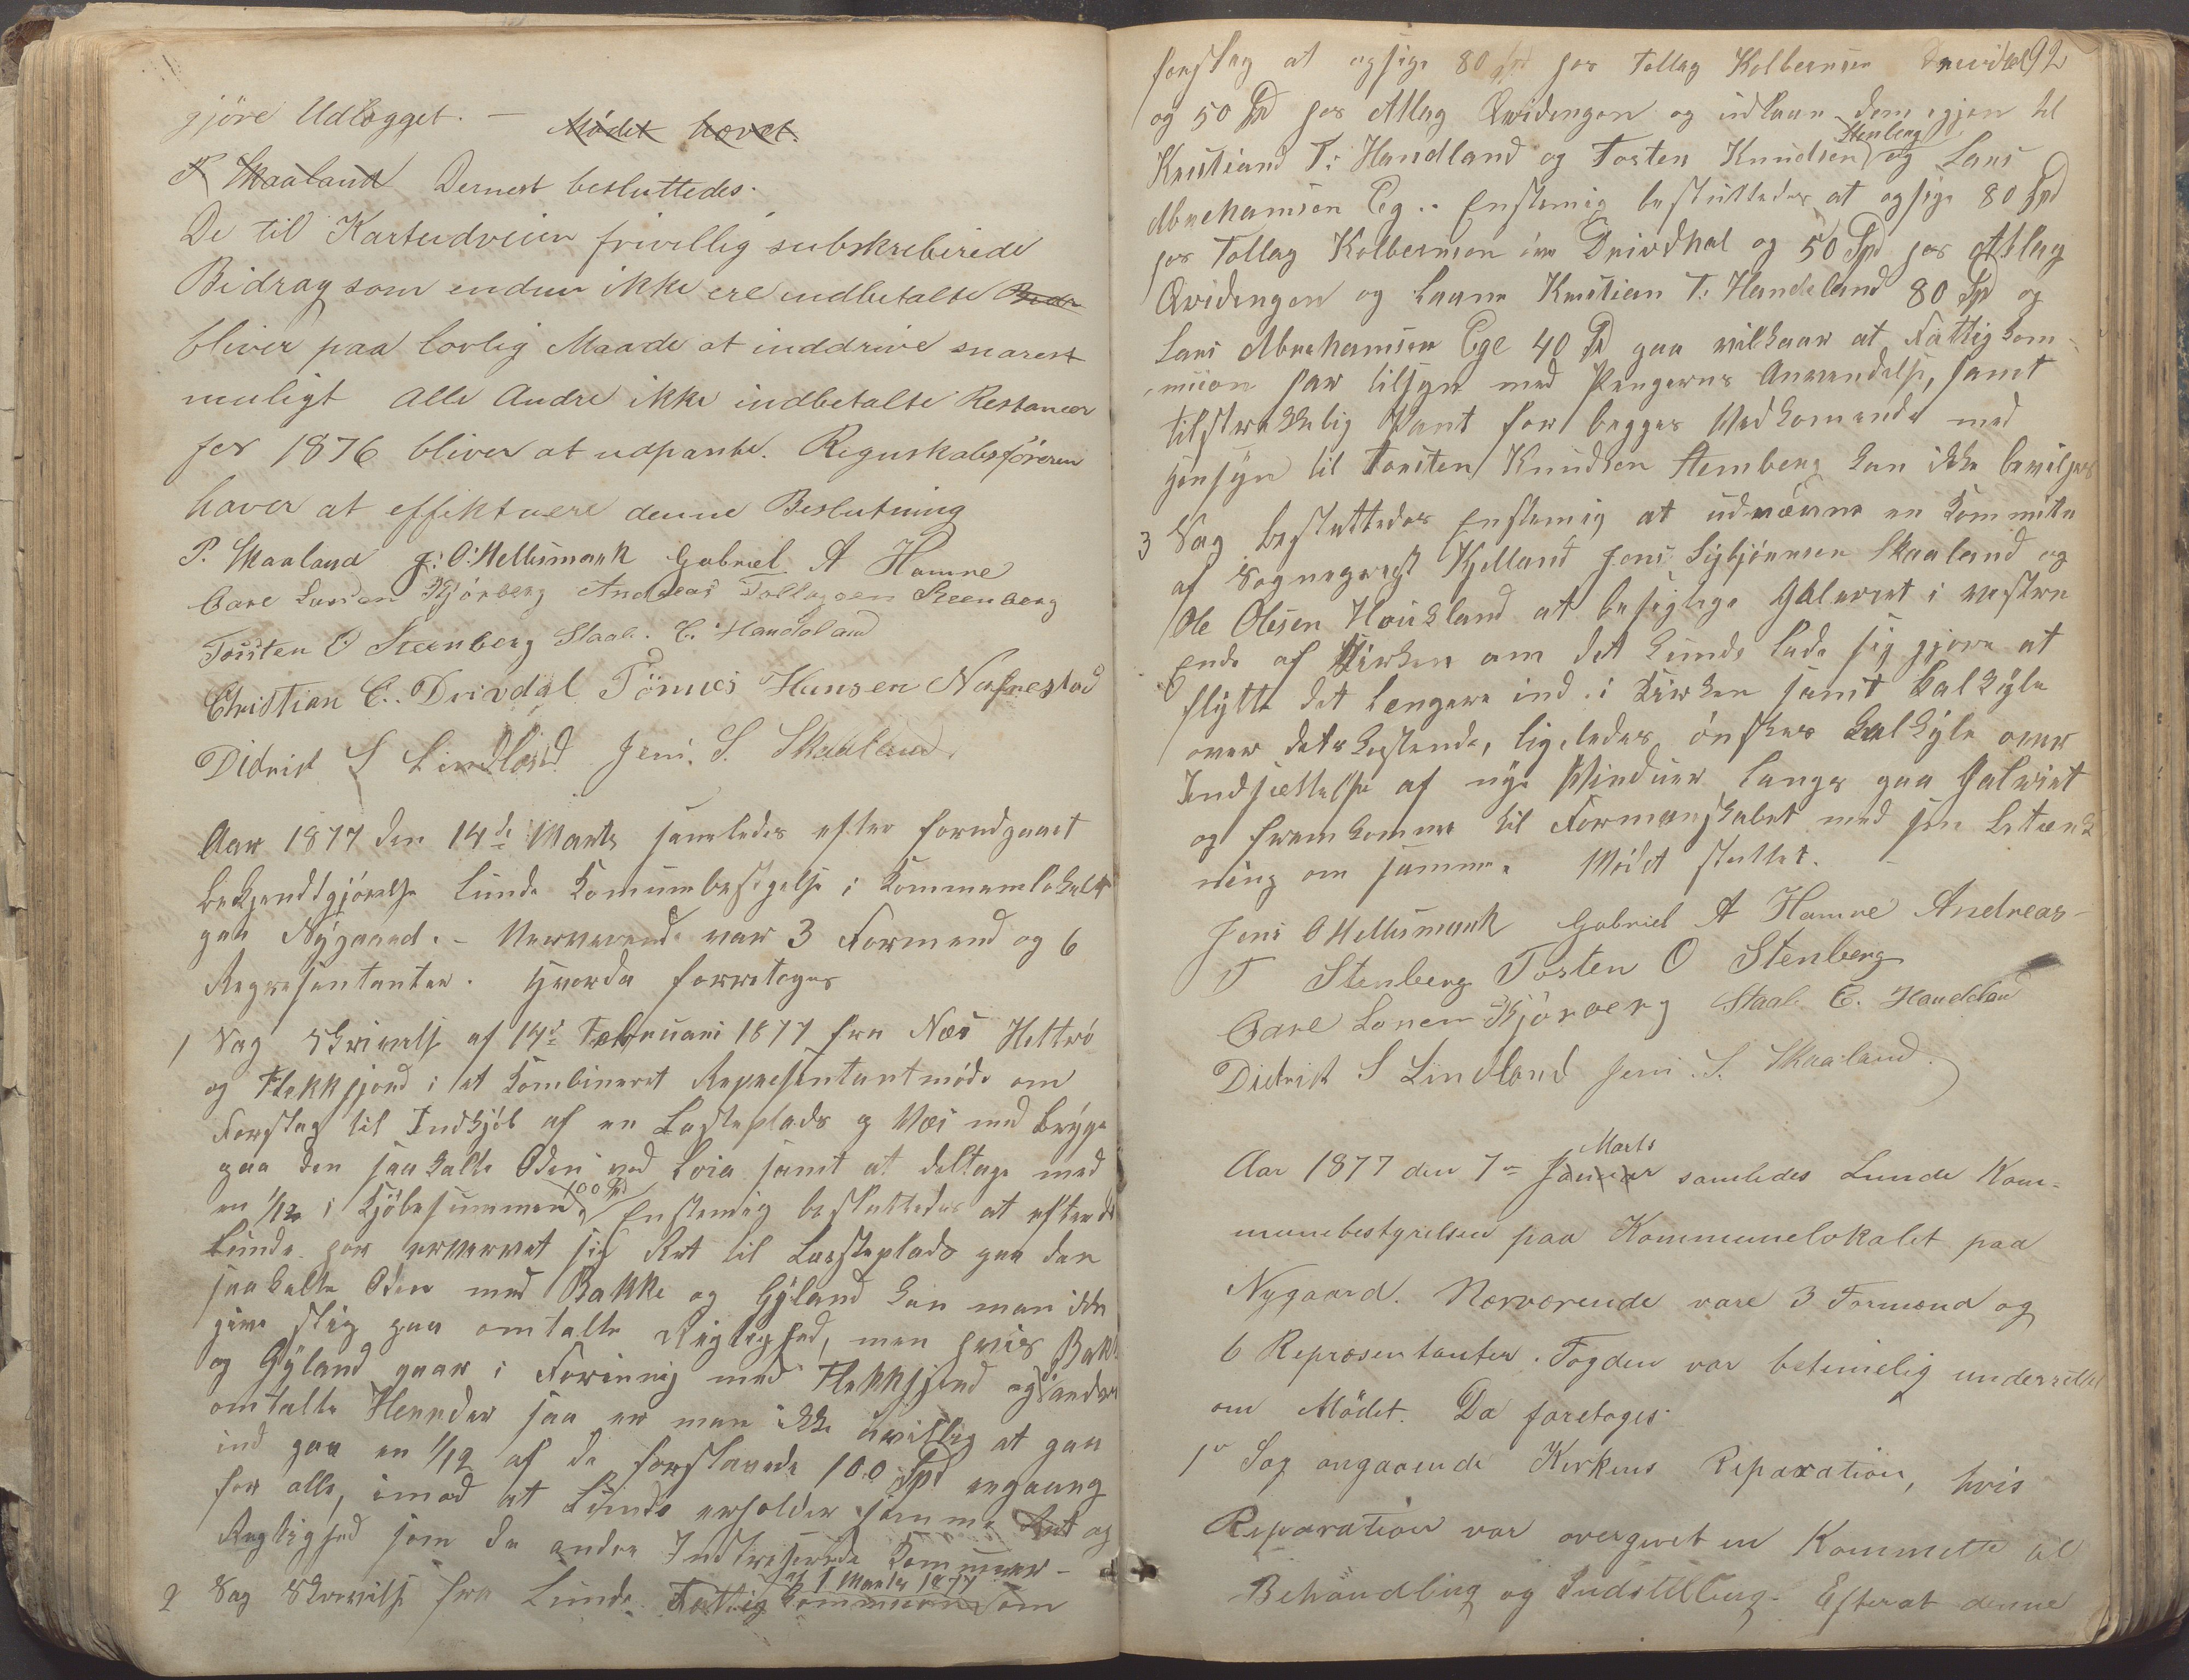 gjöre Udlegget. — Mödet hævet.
P Skaaland Dernest besluttedes.
De til Kartendveien frivillig subskreberede
Bidrag som endnu ikke ere indbetalte
bliver paa lovlig Maade at inddrive snarest
muligt Alle Andre ikke indbetalte Restancer
for 1876 bliver at udpante. Regnskabsföreren
haver at effektuere denne Beslutning
P. Skaaland J: O: Mellismark Gabriel A Hamre
Carl Larsen Kjörberg Andreas Tollagsen Steenberg
Tosten O Steenberg Staale. E. Handeland
Christian E.. Drivdal Tönnes Hansen Nafnestad
Didrik S Lindland Jens. S. Skaaland.
Aar 1877 den 14de Marts samledes efter forudgaaet
bekjendtgjörelse Lunde Komunebestyrelse i Kommunelokalet
paa Nygaard. – Nerverende var 3 Formend og 6
Representanter. Hvorda forretoges
1 Sag Skrivelse af 14de Februari 1877 fra Næs Hettrö
og Flekkfjord i et Kombineret Representantmöde om
Forslag til Indkjöb af en Lasteplads og Næs med brygge
paa den saakalte Öden ved Loia samt at deltage med
en 1/12 i Kjöbesummen 100 Spd Enstemig besluttedes at efterdi
Lunde har erhvervet sig Ret til Lasteplads paa den
saakalte Öden med Bakke og Gyland kan man ikke
give slip paa omtalte Rettighed, men hvis Bakke
og Gyland gaar i Forening med Flekkfjord og de andre
omtalte Herreder saa er man ikke uvillig at gaa
ind paa en 1/12 af de forslaaede 100 Spd engaang
for alle, imod at Lunde erholder samme Ret og
Rettighed som de andre Interreserede Kommuner –
2 Sag Skrivelse fra Lunde Fattig Kommission af 1 Marts 1877 om
92
forslag at opsige 80 Spd hos Tollag Kolbensen Drivdal
og 50 Spd hos Atlag Qvidingen og udlaane dem igjen til
Kristiand T: Handland og Tosten Knudsen Stenberg og Lars
Abrehamsen Eg.. Enstemig besluttedes at opsige 80 Spd
hos Tollag Kolbensen Drivdhal og 50 Spd hos Atlag
Qvidingen og laane Kristian T: Handeland 80 Spd og
Lars Abrehamsen Ege 40 Spd paa vilkaar at Fattigkom-
mision har tilsyn med Pengernes Anvendelse, samt
tilstrækkelig Pant for begges Vedkomende med
hensyn til Torsten Knudsen Stemberg kan ikke beviljes
3 Sag besluttedes Enstemig at udnævne en Kommite
af Sogneprest Kjelland Jens Sigbjörnsen Skaaland og
Ole Olesen Houkland at besigtige Galeriet i vestre
Ende af Kirken om det kunde lade sig gjöre at
flytte det længere ind i Kirken samt Kalkyle
over dets kostende, ligeledes önskes Kalkyle over
Indsættelse af nye Vinduer langs paa Galeriet
og fremkomme til Formanskabet med sin betænk
ning om samme. Mödet sluttet. –
Jens O Mellismark Gabriel A Hamre Andreas –
T Stenberg Tosten O Stenberg
Carl Larsen Kjörberg Staale E. Handeland
Didrik S Lindland Jens. S. Skaaland.
Aar 1877 den 7de Januar Marts samledes Lunde Kom-
munebestyrelsen paa Kommunelokalet paa
Nygaard. Nærværende vare 3 Formænd og
6 Repræsentanter. Fogden var betimelig underrettet
om Mödet. Da foretoges
1o Sag angaaende Kirkens Reparation, hvis
Reparation var overgivet en Kommitte til
Behandling og Indstilling. Efterat denne